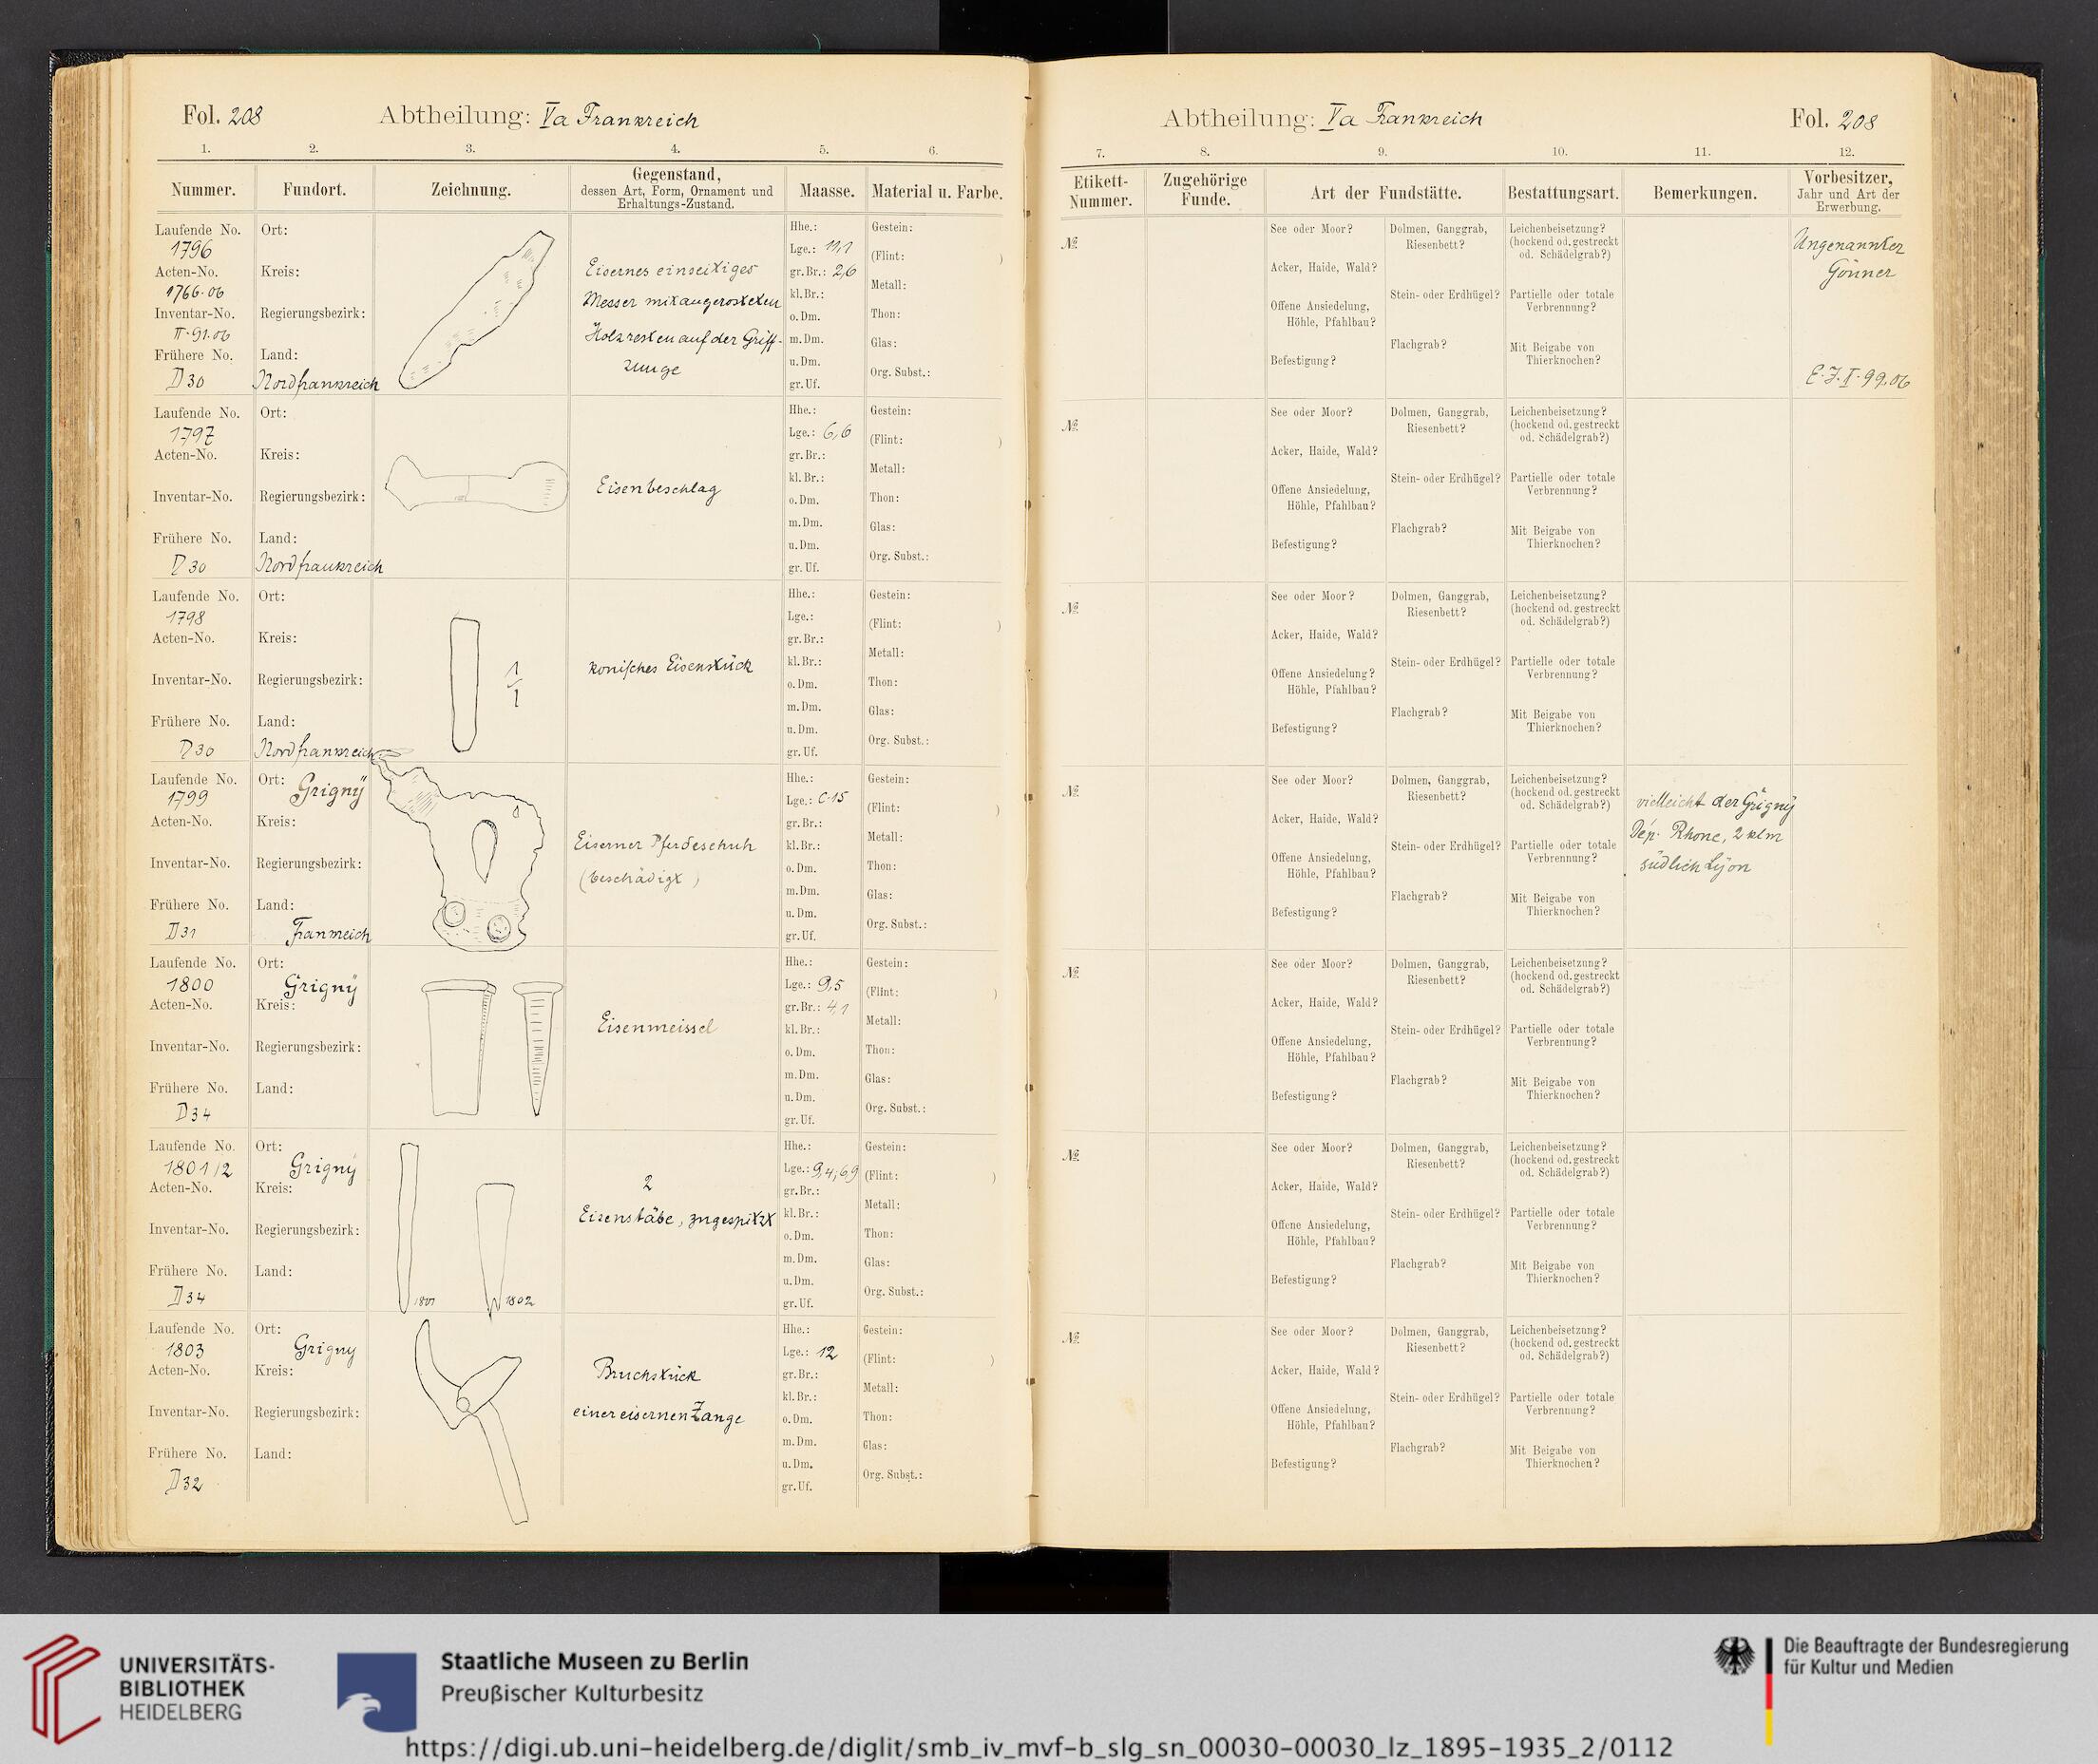 Fol. 208
Abtheilung: Va Frankreich
1. 2. 3. 4. 5. 6.
Nummer. Fundort. Zeichnung. Gegenstand, dessen Art, Form, Ornament und Erhaltungs-Zustand. Maasse. Material u. Farbe.
Laufende No. Ort: Hhe.: Gestein:
1796 Lge.: 11,1 (Flint: )
Acten-No. Kreis: Eisernes einseitiges gr. Br.: 2,6
1766.06 Messer mit angerosteten kl. Br.: Metall:
Inventar-No. Regierungsbezirk: o. Dm. Thon:
II.91.06 Holzresten auf der Griff- m. Dm. Glas:
Frühere No. Land: zunge u. Dm.
D 30 Nordfrankreich gr. Uf. Org. Subst.:
Laufende No. Ort: Hhe.: Gestein:
1797 Lge.: 6,6 (Flint: )
Acten-No. Kreis: gr. Br.: Metall:
Eisenbeschlag kl. Br.:
Inventar-No. Regierungsbezirk: o. Dm. Thon:
m. Dm. Glas:
Frühere No. Land: u. Dm.
D 30 Nordfrankreich gr. Uf. Org. Subst.:
Laufende No. Ort: Hhe.: Gestein:
1798 Lge.: (Flint: )
Acten-No. Kreis: gr. Br.:
1/1 konisches Eisenstück kl. Br.: Metall:
Inventar-No. Regierungsbezirk: o. Dm. Thon:
m. Dm. Glas:
Frühere No. Land: u. Dm.
D 30 Nordfrankreich gr. Uf. Org. Subst.:
Laufende No. Ort: Grigny Hhe.: Gestein:
1799 Lge.: c 15 (Flint: )
Acten-No. Kreis: gr. Br.:
Eiserner Pferdeschuh kl. Br.: Metall:
Inventar-No. Regierungsbezirk: (beschädigt) o. Dm. Thon:
m. Dm. Glas:
Frühere No. Land: u. Dm.
D 31 Frankreich gr. Uf. Org. Subst.:
Laufende No. Ort: Hhe.: Gestein:
1800 Grigny Lge.: 9,5 (Flint: )
Acten-No. Kreis: gr. Br.: 4,1
Eisenmeissel kl. Br.: Metall:
Inventar-No. Regierungsbezirk: o. Dm. Thon:
m. Dm. Glas:
Frühere No. Land: u. Dm.
D 34 gr. Uf. Org. Subst.:
Laufende No. Ort: Hhe.: Gestein:
1801/2 Grigny Lge.: 9,4; 6,9 (Flint: )
Acten-No. Kreis: 2 gr. Br.:
Eisenstäbe, zugespitzt kl. Br.: Metall:
Inventar-No. Regierungsbezirk: o. Dm. Thon:
m. Dm. Glas:
Frühere No. Land: u. Dm.
D 34 1801 1802 gr. Uf. Org. Subst.:
Laufende No. Ort: Hhe.: Gestein:
1803 Grigny Lge.: 12 (Flint: )
Acten-No. Kreis: Bruchstück gr. Br.:
kl. Br.: Metall:
Inventar-No. Regierungsbezirk: einer eisernen Zange o. Dm. Thon:
m. Dm. Glas:
Frühere No. Land: u. Dm.
D 32 gr. Uf. Org. Subst.:
Abtheilung: Va Frankreich
Fol. 208
7. 8. 9. 10. 11. 12.
Etikett-Nummer. Zugehörige Funde. Art der Fundstätte. Bestattungsart. Bemerkungen. Vorbesitzer, Jahr und Art der Erwerbung.
№ See oder Moor? Dolmen, Ganggrab, Riesenbett? Leichenbeisetzung? (hockend od. gestreckt od. Schädelgrab?) Ungenannter
Acker, Haide, Wald? Gönner
Offene Ansiedelung, Höhle, Pfahlbau? Stein- oder Erdhügel? Partielle oder totale Verbrennung?
Befestigung? Flachgrab? Mit Beigabe von Thierknochen? E.J.I.99.06
№ See oder Moor? Dolmen, Ganggrab, Riesenbett? Leichenbeisetzung? (hockend od. gestreckt od. Schädelgrab?)
Acker, Haide, Wald?
Offene Ansiedelung, Höhle, Pfahlbau? Stein- oder Erdhügel? Partielle oder totale Verbrennung?
Befestigung? Flachgrab? Mit Beigabe von Thierknochen?
№ See oder Moor? Dolmen, Ganggrab, Riesenbett? Leichenbeisetzung? (hockend od. gestreckt od. Schädelgrab?)
Acker, Haide, Wald?
Offene Ansiedelung? Höhle, Pfahlbau? Stein- oder Erdhügel? Partielle oder totale Verbrennung?
Befestigung? Flachgrab? Mit Beigabe von Thierknochen?
№ See oder Moor? Dolmen, Ganggrab, Riesenbett? Leichenbeisetzung? (hockend od. gestreckt od. Schädelgrab?) vielleicht der Grigny
Acker, Haide, Wald? Dép. Rhone, 2 klm
Offene Ansiedelung, Höhle, Pfahlbau? Stein- oder Erdhügel? Partielle oder totale Verbrennung? südlich Lyon
Befestigung? Flachgrab? Mit Beigabe von Thierknochen?
№ See oder Moor? Dolmen, Ganggrab, Riesenbett? Leichenbeisetzung? (hockend od. gestreckt od. Schädelgrab?)
Acker, Haide, Wald?
Offene Ansiedelung, Höhle, Pfahlbau? Stein- oder Erdhügel? Partielle oder totale Verbrennung?
Befestigung? Flachgrab? Mit Beigabe von Thierknochen?
№ See oder Moor? Dolmen, Ganggrab, Riesenbett? Leichenbeisetzung? (hockend od. gestreckt od. Schädelgrab?)
Acker, Haide, Wald?
Offene Ansiedelung, Höhle, Pfahlbau? Stein- oder Erdhügel? Partielle oder totale Verbrennung?
Befestigung? Flachgrab? Mit Beigabe von Thierknochen?
№ See oder Moor? Dolmen, Ganggrab, Riesenbett? Leichenbeisetzung? (hockend od. gestreckt od. Schädelgrab?)
Acker, Haide, Wald?
Offene Ansiedelung, Höhle, Pfahlbau? Stein- oder Erdhügel? Partielle oder totale Verbrennung?
Befestigung? Flachgrab? Mit Beigabe von Thierknochen?
UNIVERSITÄTS-
BIBLIOTHEK
HEIDELBERG
Staatliche Museen zu Berlin
Preußischer Kulturbesitz
Die Beauftragte der Bundesregierung
für Kultur und Medien
https://digi.ub.uni-heidelberg.de/diglit/smb_iv_mvf-b_slg_sn_00030-00030_lz_1895-1935_2/0112